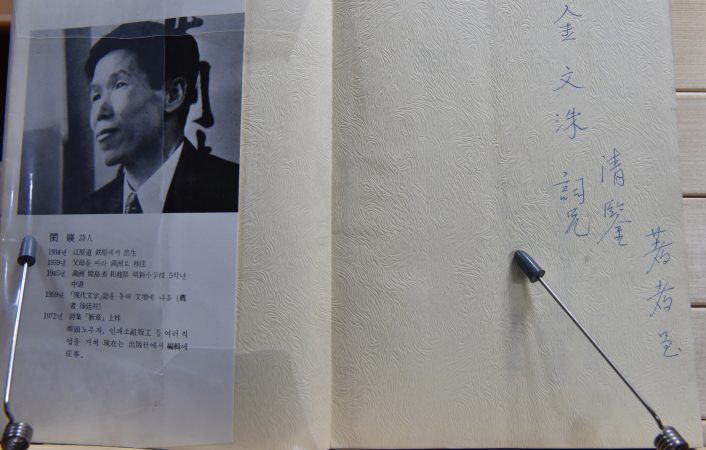 閔 暎 詩人
1934년 江原道 鉄原에서 出生
1939년 父母를 따라 滿洲로 移住
1945년 滿洲 間島省 和龍縣 明新小学校 5학년
中退
1959년 「現代文学」誌를 통해 文壇에 나옴 (薦
者 徐廷柱)
1972년 詩集「斷章」上梓
埠頭노무자, 인쇄소組版工 등 여러 직
업을 거쳐 現在는 出版社에서 編輯에
従事.
金文洙 詞兄
清鑒
著者 呈